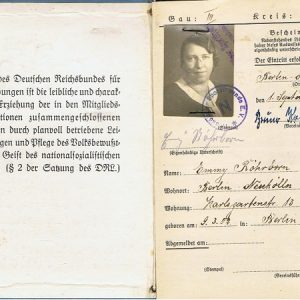 es Deutschen Reichsbundes für
bungen ist die leibliche und charak-
Erziehung der in den Mitglieds-
tionen zusammengeschlossenen
n durch planvoll betriebene Lei-
gen und Pflege des Volksbewußt-
Geist des nationalsozialistischen
(§ 2 der Satzung des DRL.)
Gau: III Kreis:
Beschein
Der Eintritt erfol
Berlin
1. Sept
Emmy Röhrborn
(Eigenhändige Unterschrift)
Name: Emmy Röhrborn
Wohnort: Berlin Neukölln
Wohnung: 13
geboren am: 9.3. in Berlin
Abgemeldet am:
(Stempel)
(Vereinsführer